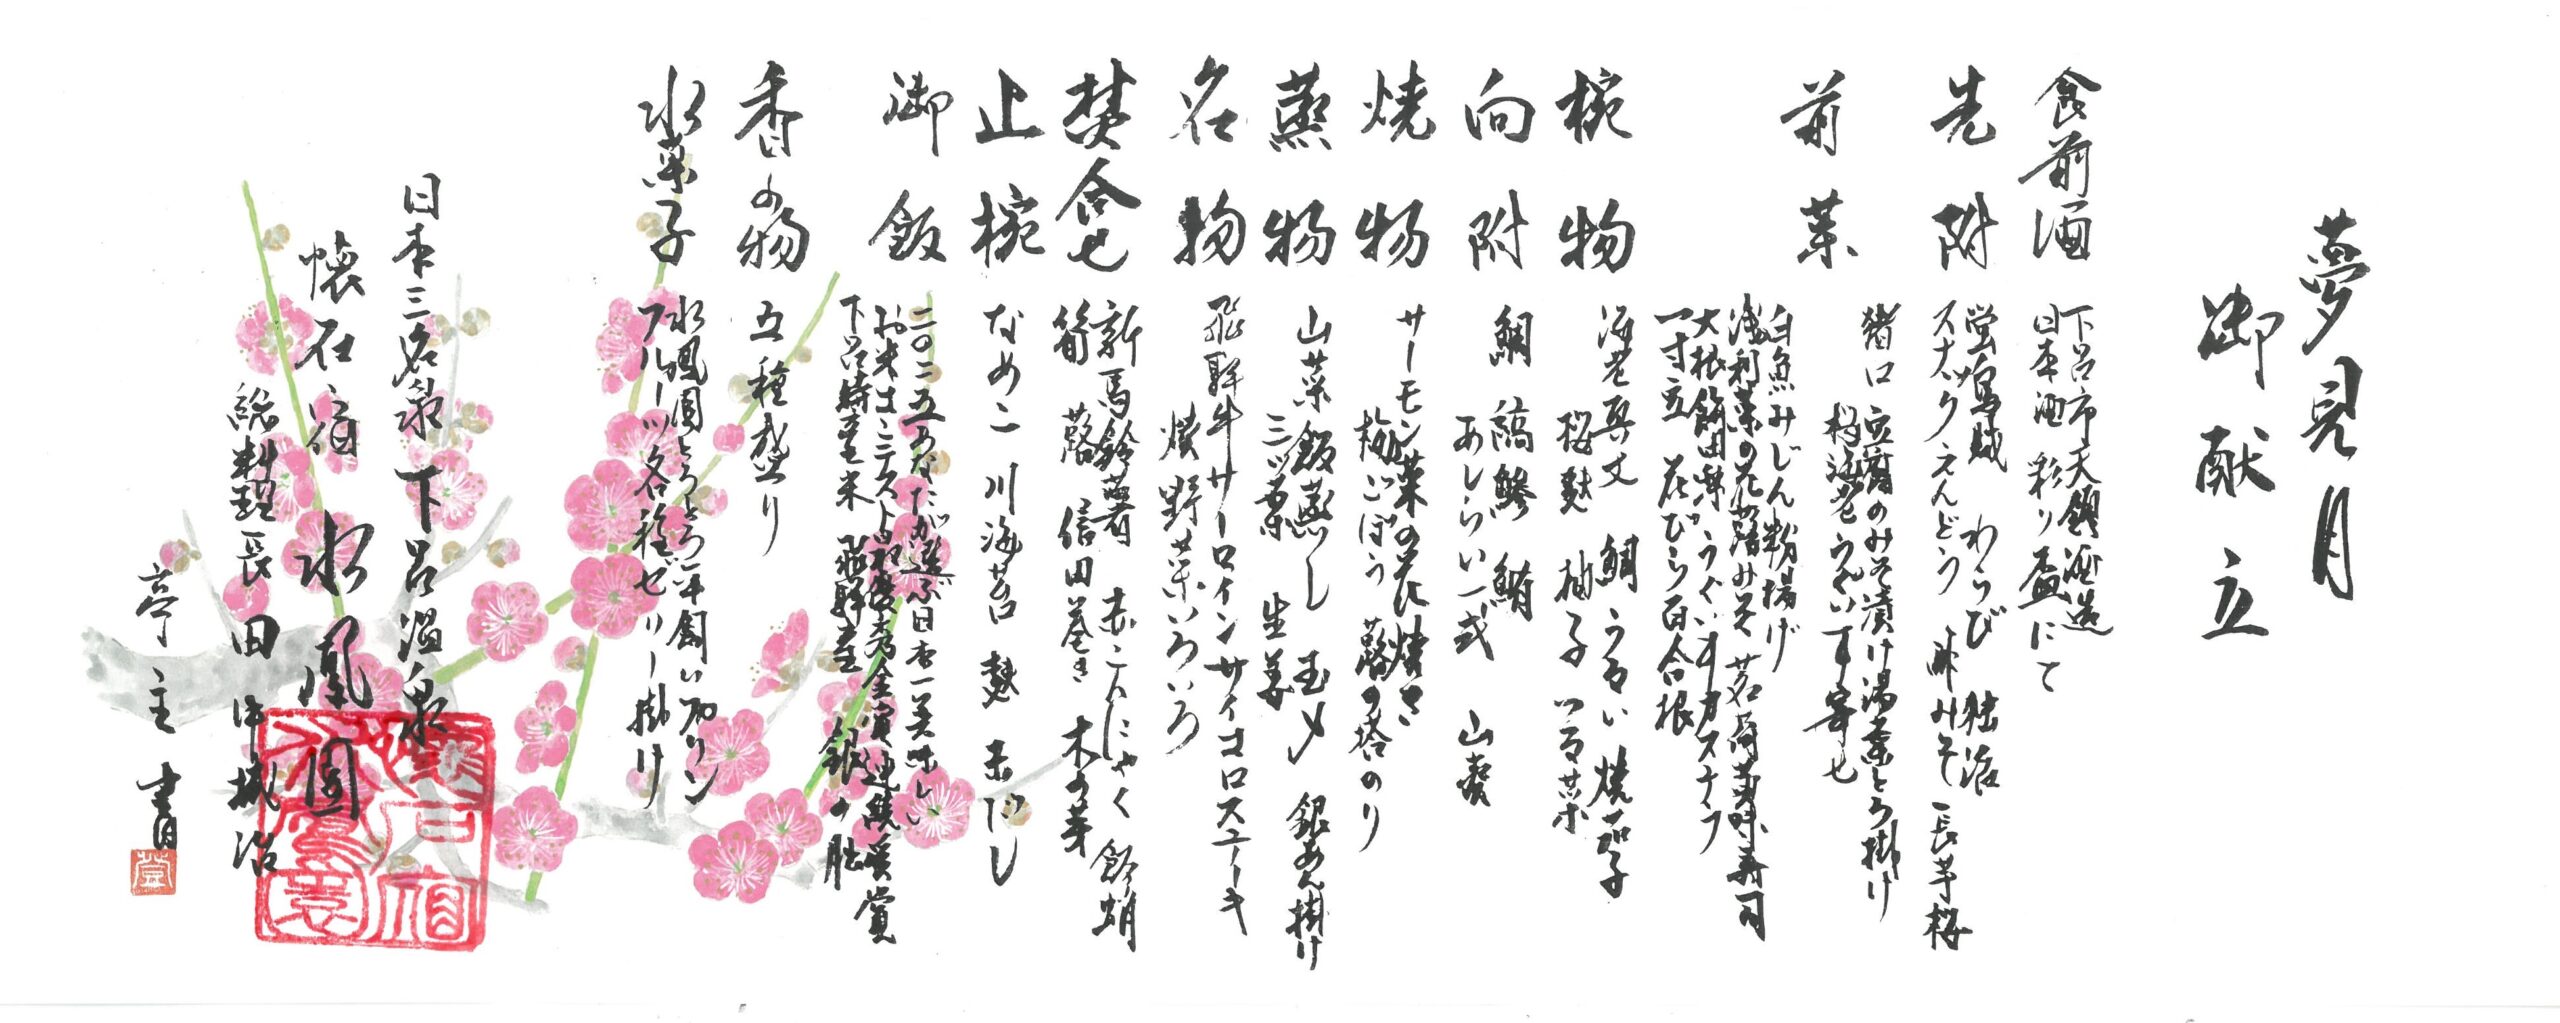 夢見月
御献立
食前酒
下呂市天領酒造
日本酒 彩り盃にて
先附
蛍烏賊 わらび 独活
スナックえんどう 酢みそ 長芋桜
前菜
猪口 豆腐のみそ漬け湯葉とろ掛け
桜海老うぐい丁寄せ
白魚みじん粉揚げ
浅利菜の花蕗みそ 茗荷黄味寿司
大根餅田楽 うぐいすカステラ
一寸豆 花びら百合根
椀物
海老真丈 鯛 うるい 焼茄子
桜麸 柚子 つる菜
向附
鯛 縞鯵 鮪
あしらい一式 山葵
焼物
サーモン菜の花焼き
梅ごぼう 蕗の塔のり
蒸物
山菜飯蒸し 玉〆 銀あん掛け
三ツ葉 生姜
名物
飛騨牛サーロインサイコロステーキ
焼野菜いろいろ
焚合せ
新馬鈴薯 赤こんにゃく 飯蛸
筍 蕗 信田巻き 木の芽
止椀
なめこ 川海苔 麸 赤だし
御飯
二〇二五あなたが選ぶ日本一美味しい
お米コンテスト最優秀金賞連続受賞
下呂特産米 飛騨産 銀の朏
香の物
五種盛り
水菓子
水鳳園とろとろ平飼いプリン
フルーツ各種ゼリー掛け
日本三名泉 下呂温泉
懐石宿 水鳳園
総料理長 田中城治
亭主 書